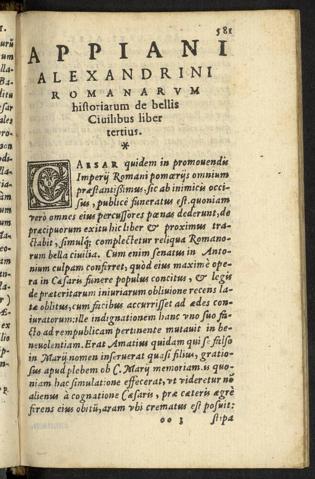 581
APPIANI
ALEXANDRINI
ROMANARVM
historiarum de bellis
Ciuilibus liber
tertius.
*
CAESAR quidem in promouendis
Imperij Romani pomœrijs omnium
præstantissimus, sic ab inimicis occi-
sus, publicè funeratus est. quoniam
verò omnes eius percussores pœnas dederunt, de
præcipuorum exitu hic liber & proximus tra-
ctabit, simulq; complectetur reliqua Romano-
rum bella ciuilia. Cum enim senatus in Anto-
nium culpam conferret, quòd eius maximè ope-
ra in Cæsaris funere populus concitus, & legis
de præteritarum iniuriarum obliuione recens la-
tæ oblitus, cum facibus accurrisset ad ædes con-
iuratorum: ille indignationem hanc vno suo fa-
cto ad rempublicam pertinente mutauit in be-
neuolentiam. Erat Amatius quidam qui se falso
in Marij nomen inseruerat quasi filius, gratio-
sus apud plebem ob C. Marij memoriam. is quo-
niam hac simulatione effecerat, vt videretur nō
alienus à cognatione Cæsaris, præ cæteris ægrè
ferens eius obitū, aram vbi crematus est posuit:
oo 3
stipa